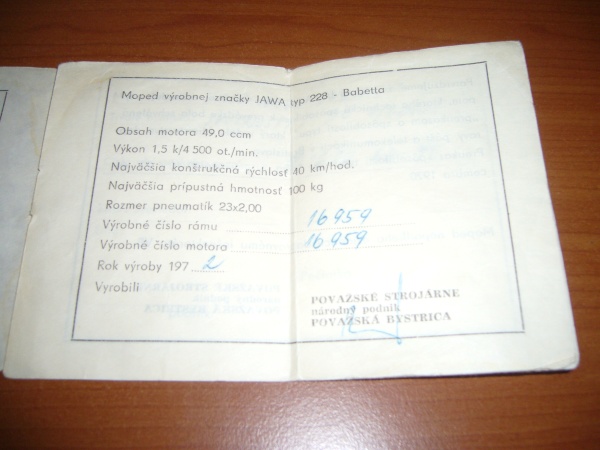 Moped výrobnej značky JAWA typ 228 - Babetta
Obsah motora 49,0 ccm
Výkon 1,5 k/4 500 ot./min.
Najväčšia konštrukčná rýchlosť 40 km/hod.
Najväčšia prípustná hmotnosť 100 kg
Rozmer pneumatík 23x2,00
Výrobné číslo rámu 16959
Výrobné číslo motora 16959
Rok výroby 197 2
Vyrobili
POVAŽSKÉ STROJÁRNE
národný podnik
POVAŽSKÁ BYSTRICA